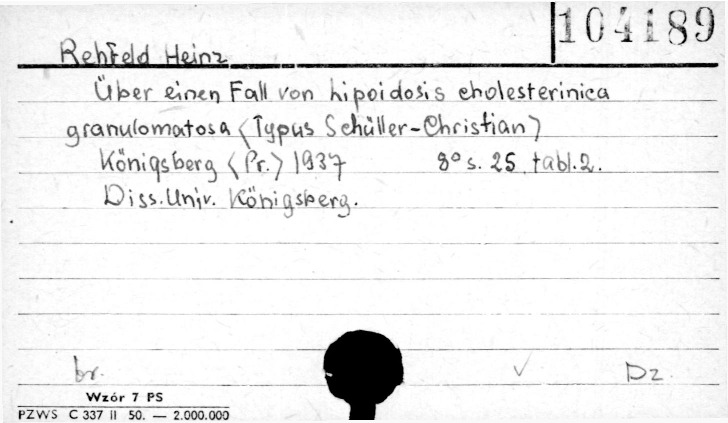 104189
Rehfeld Heinz
Über einen Fall von Lipoidosis cholesterinica
granulomatosa <Typus Schüller-Christian>
Königsberg <Pr.> 1937 8° s. 25, tabl. 2.
Diss. Univ. Königsberg.
br. ✓ Dz.
Wzór 7 PS
PZWS C 337 II 50. — 2.000.000